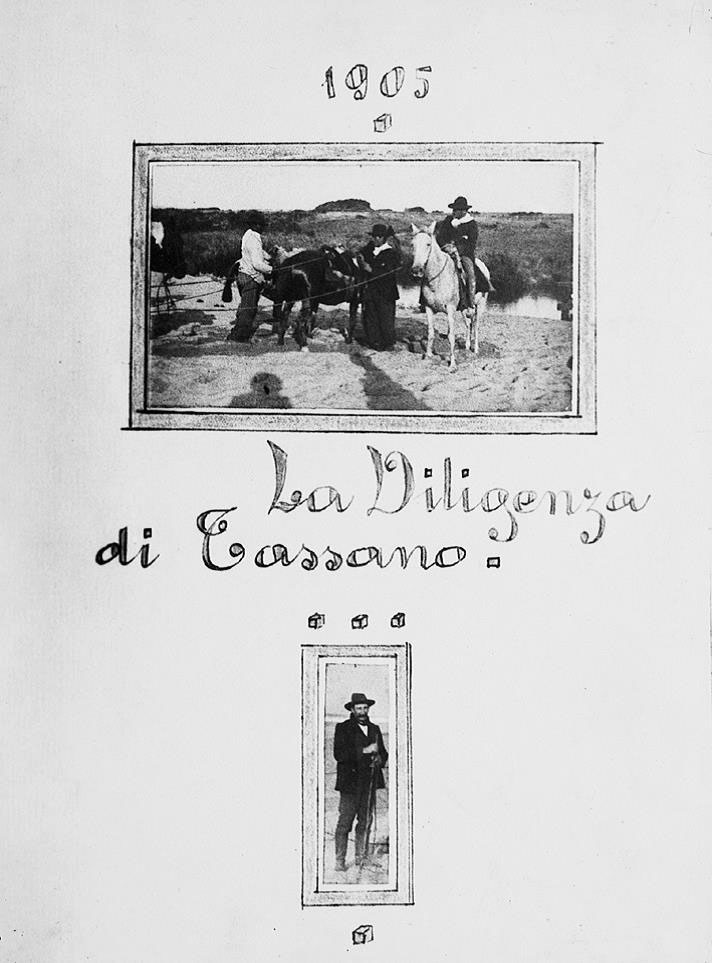 1905
La Diligenza
di Tassano.